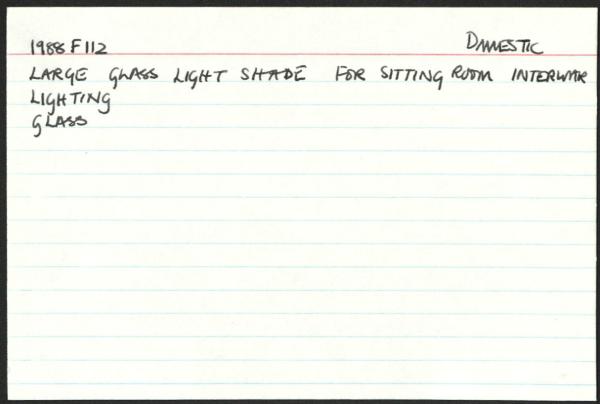 1988 F 112 DOMESTIC
LARGE GLASS LIGHT SHADE FOR SITTING ROOM INTERWAR
LIGHTING
GLASS